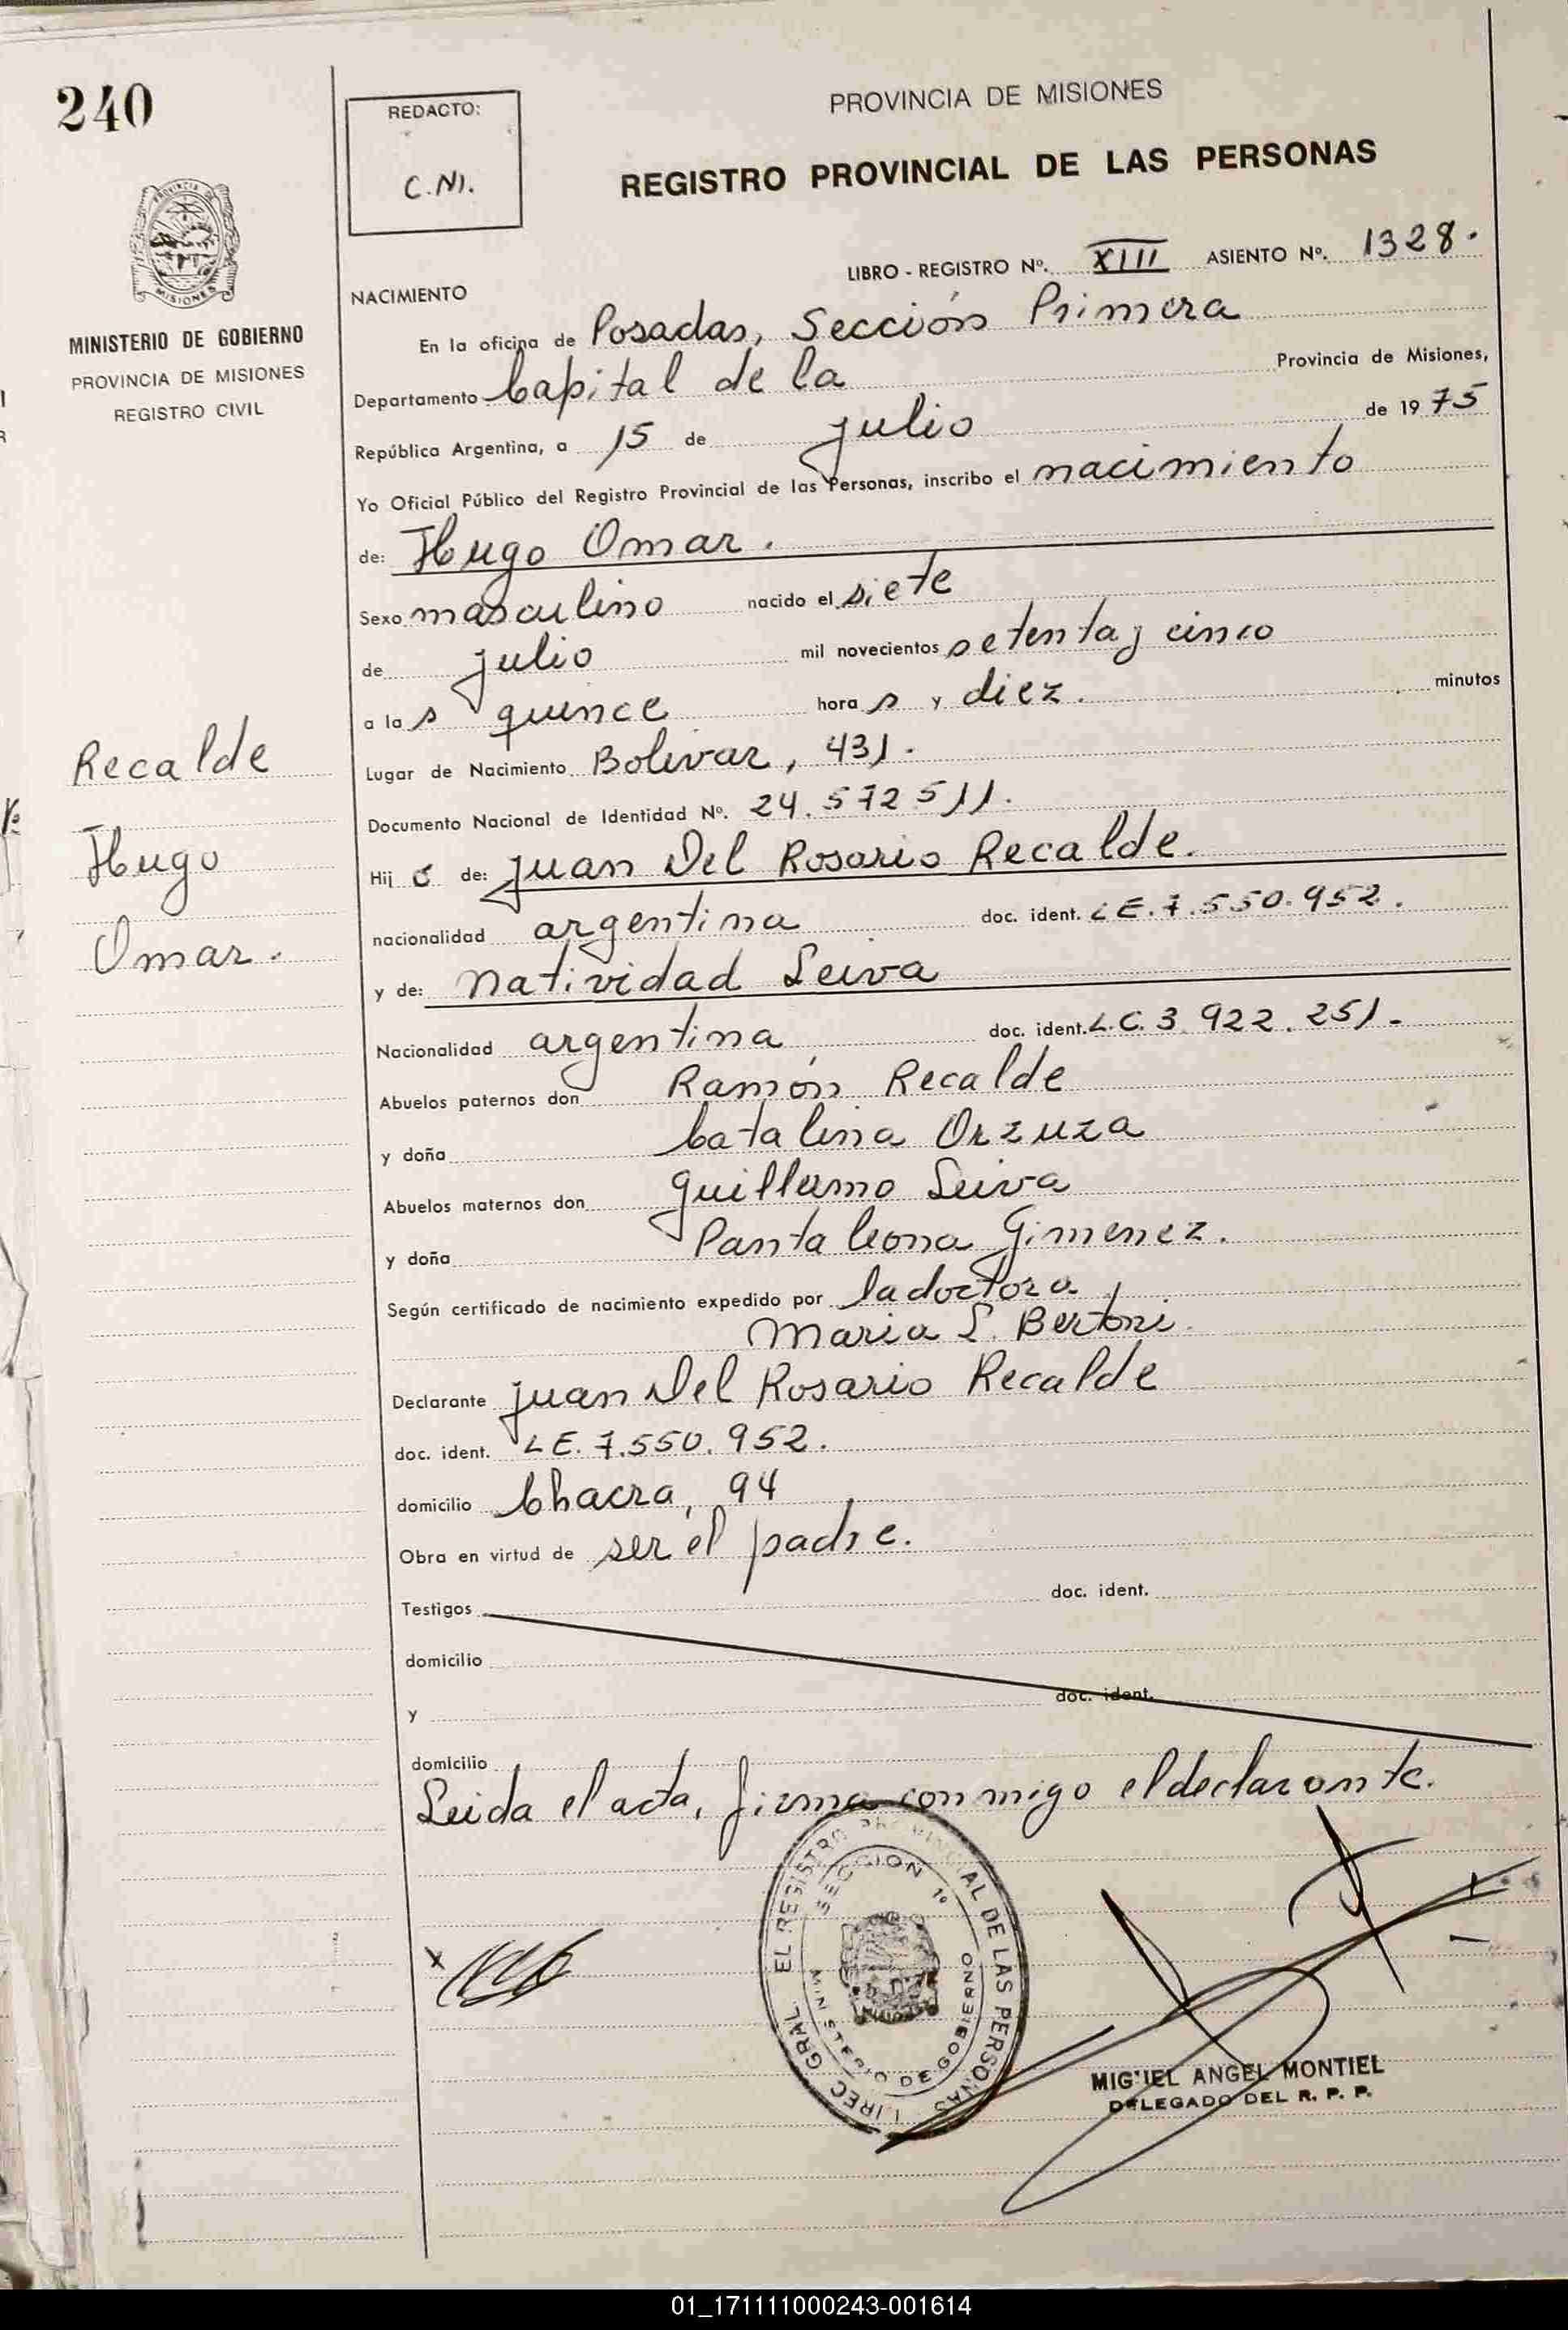 240
REDACTO:
C.N.
PROVINCIA DE MISIONES
REGISTRO PROVINCIAL DE LAS PERSONAS
LIBRO - REGISTRO Nº. XIII ASIENTO Nº. 1328.
PROVINCIA DE MISIONES
MINISTERIO DE GOBIERNO
PROVINCIA DE MISIONES
REGISTRO CIVIL
NACIMIENTO
En la oficina de Posadas, Sección Primera
Departamento Capital de la Provincia de Misiones,
República Argentina, a 15 de julio de 1975
Yo Oficial Público del Registro Provincial de las Personas, inscribo el nacimiento
de: Hugo Omar.
Sexo masculino nacido el siete
de julio mil novecientos setenta y cinco
a las quince horas y diez. minutos
Recalde
Hugo
Omar.
Lugar de Nacimiento Bolivar, 431.
Documento Nacional de Identidad Nº. 24.572511.
Hijo de: Juan Del Rosario Recalde.
nacionalidad argentina doc. ident. LE.7.550.952.
y de: Natividad Leiva
Nacionalidad argentina doc. ident. L.C. 3.922.251.-
Abuelos paternos don Ramón Recalde
y doña Catalina Orzuza
Abuelos maternos don Guillermo Leiva
y doña Pantaleona Gimenez.
Según certificado de nacimiento expedido por la doctora
Maria L. Bertoni.
Declarante Juan Del Rosario Recalde
doc. ident. LE. 7.550.952.
domicilio Chacra, 94
Obra en virtud de ser el padre.
Testigos doc. ident.
domicilio
y doc. ident.
domicilio
Leida el acta, firma conmigo el declarante.
x
DIREC GRAL. EL REGISTRO PROVINCIAL DE LAS PERSONAS
SECCION 1º
MINISTERIO DE GOBIERNO
MISIONES
MIGUEL ANGEL MONTIEL
DELEGADO DEL R. P. P.
01_171111000243-001614